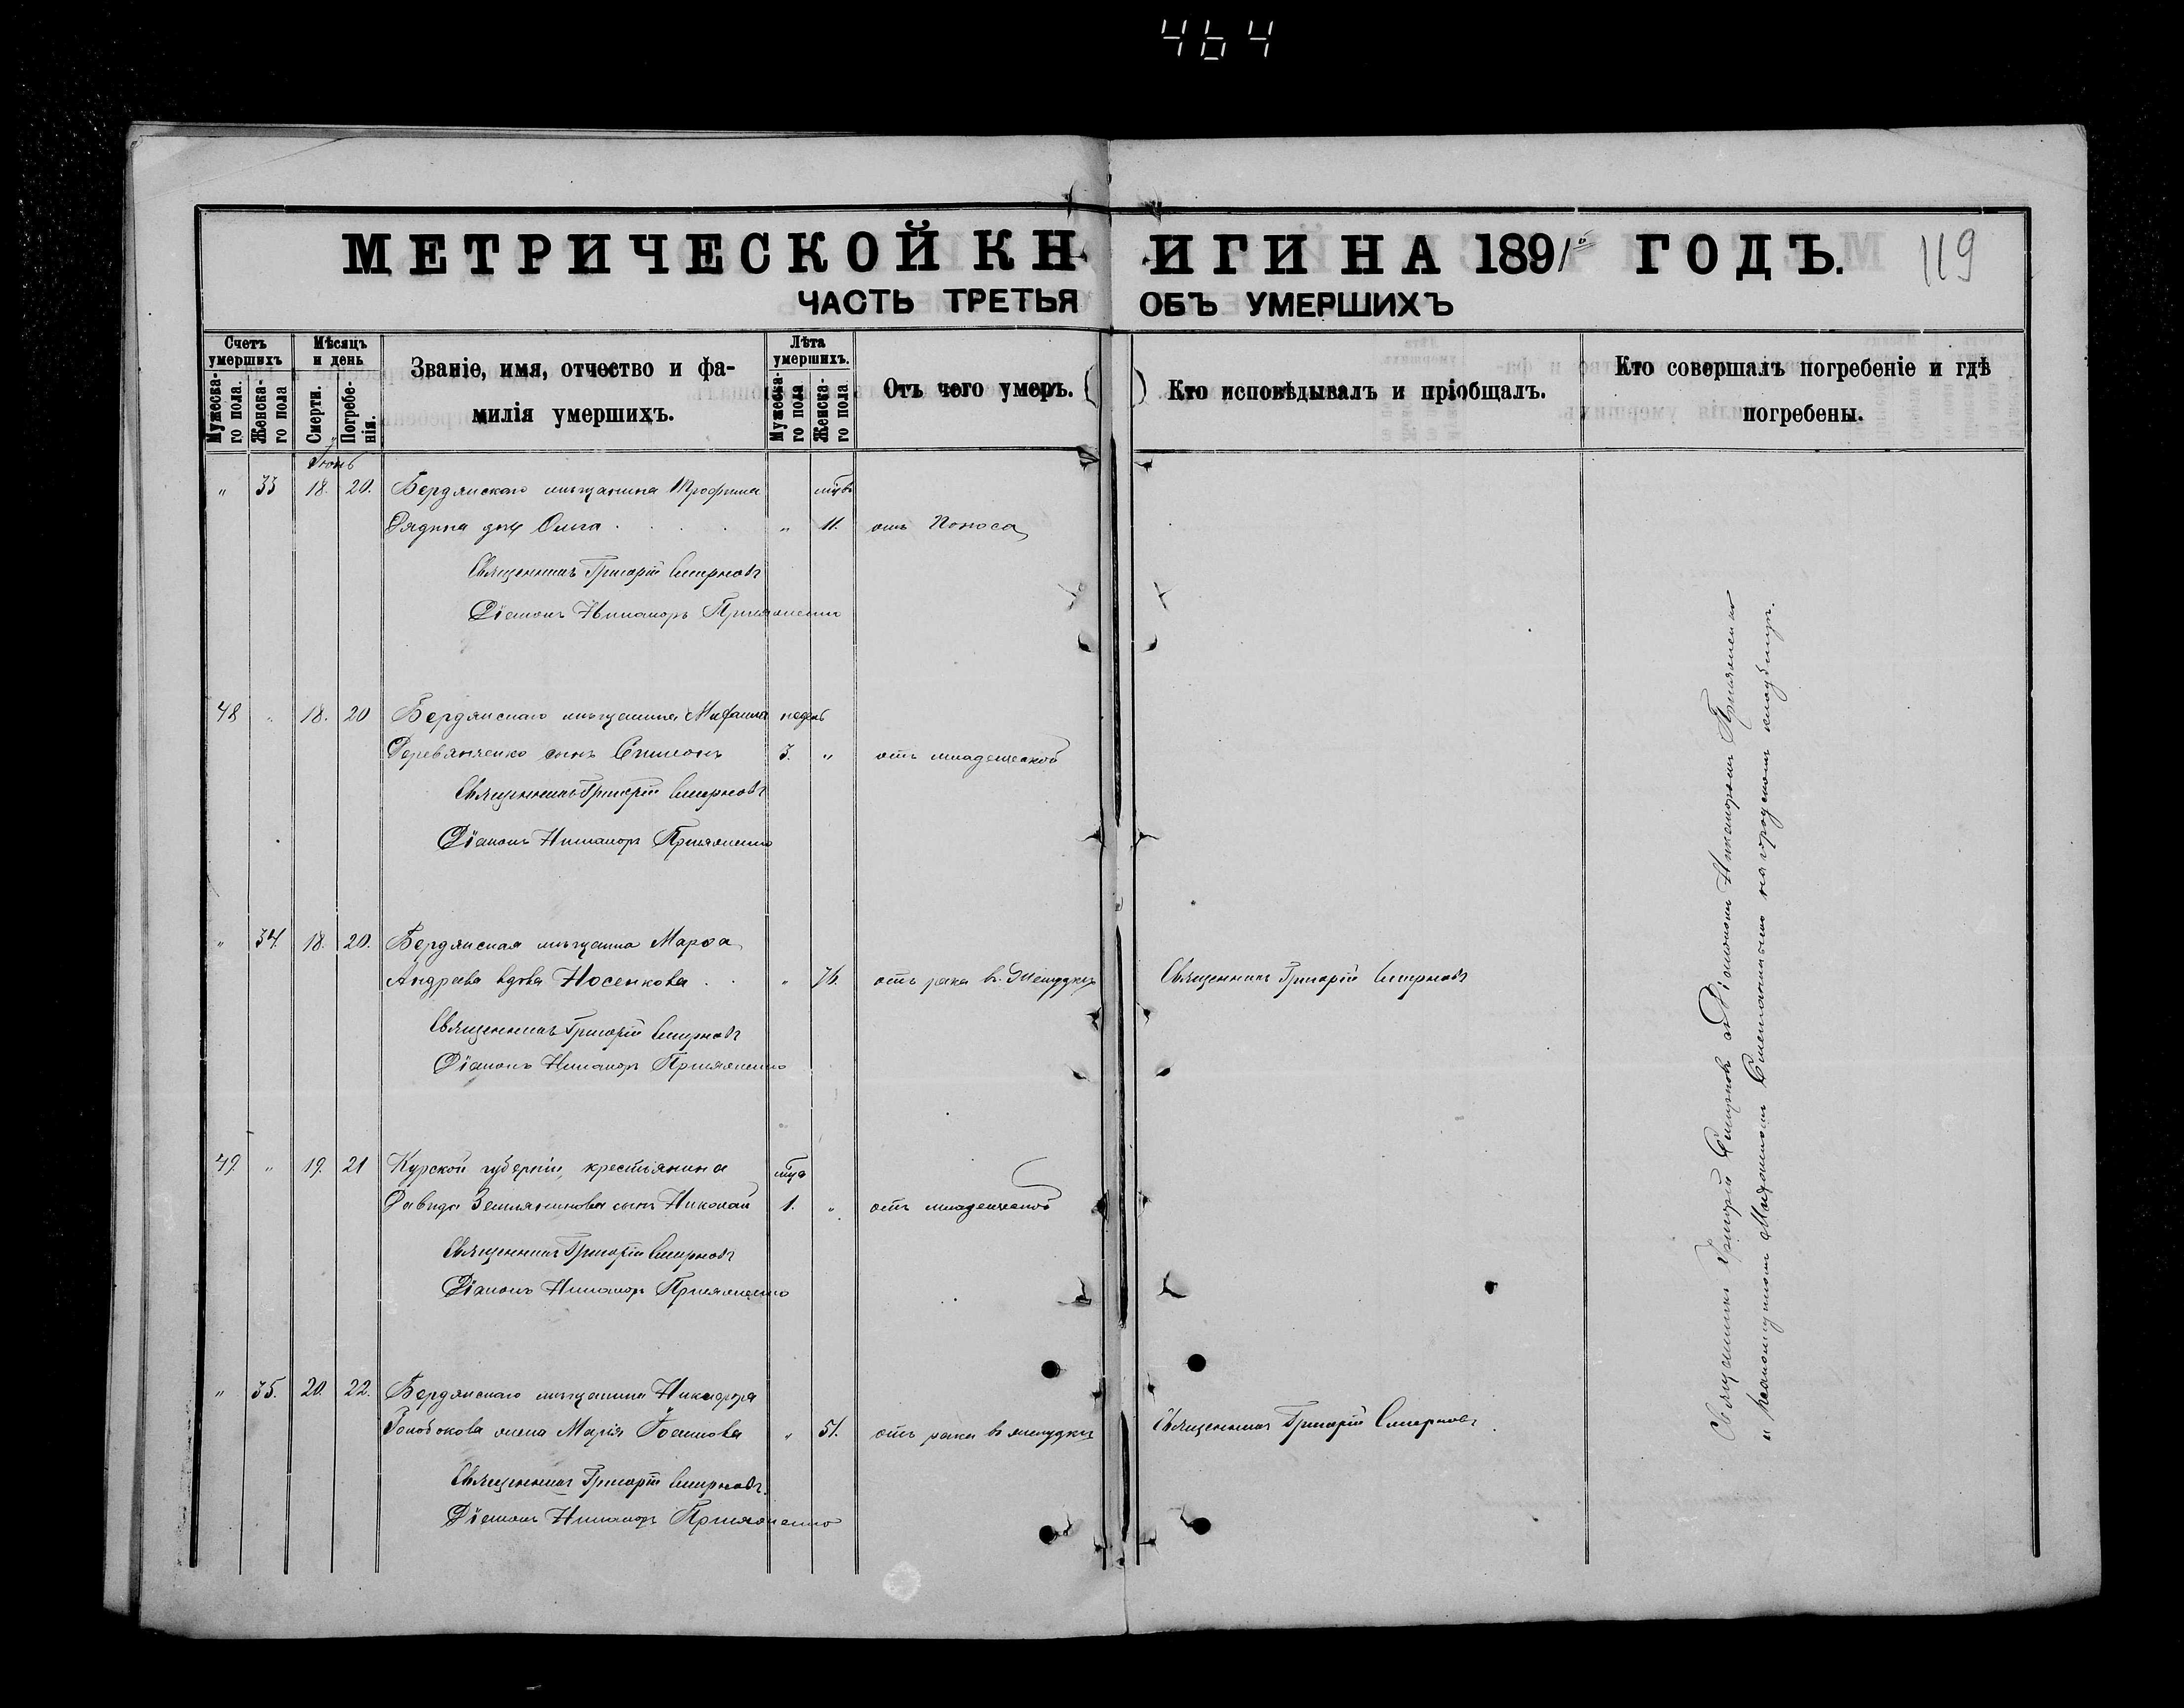 464
МЕТРИЧЕСКОЙ КНИГИ НА 1891 ГОДЪ.
119
ЧАСТЬ ТРЕТЬЯ ОБЪ УМЕРШИХЪ
Счетъ умершихъ
Мужеска-го пола.
Женска-го пола
Мѣсяцъ и день
Смерти.
Погребе-нія.
Званіе, имя, отчество и фа-
милія умершихъ.
Лѣта умершихъ.
Мужеска-го пола
Женска-го пола
Отъ чего умеръ.
Кто исповѣдывалъ и пріобщалъ.
Кто совершалъ погребеніе и гдѣ
погребены.
Іюнь
" 33 18. 20. Бердянскаго мѣщанина Трофима
Рядна дочь Ольга " 11. отъ Поноса
Священникъ Григорій Смирновъ
Діаконъ Никаноръ
48 " 18. 20 Бердянскаго мѣщанина недѣль
Деревянченко сынъ Симеонъ 3. " отъ младенческой
Священникъ Григорій Смирновъ
Діаконъ Никаноръ
" 34. 18. 20. Бердянская мѣщанка Марѳа
Андреева вдова Носенкова " 76. отъ рака въ желудкѣ Священникъ Григорій Смирновъ
Священникъ Григорій Смирновъ
Діаконъ Никаноръ
49. " 19. 21 Курской губерніи, крестьянина
Давида Землянинова сынъ Николай 1. " отъ младенческой
Священникъ Григорій Смирновъ
Діаконъ Никаноръ
" 35. 20. 22. Бердянскаго мѣщанина Никифора
жена Марія " 51. отъ рака въ желудкѣ Священникъ Григорій Смирновъ
Священникъ Григорій Смирновъ
Діаконъ Никаноръ
Священникъ Григорій Смирновъ съ Діакономъ Никаноромъ
и на городскомъ кладбищѣ.